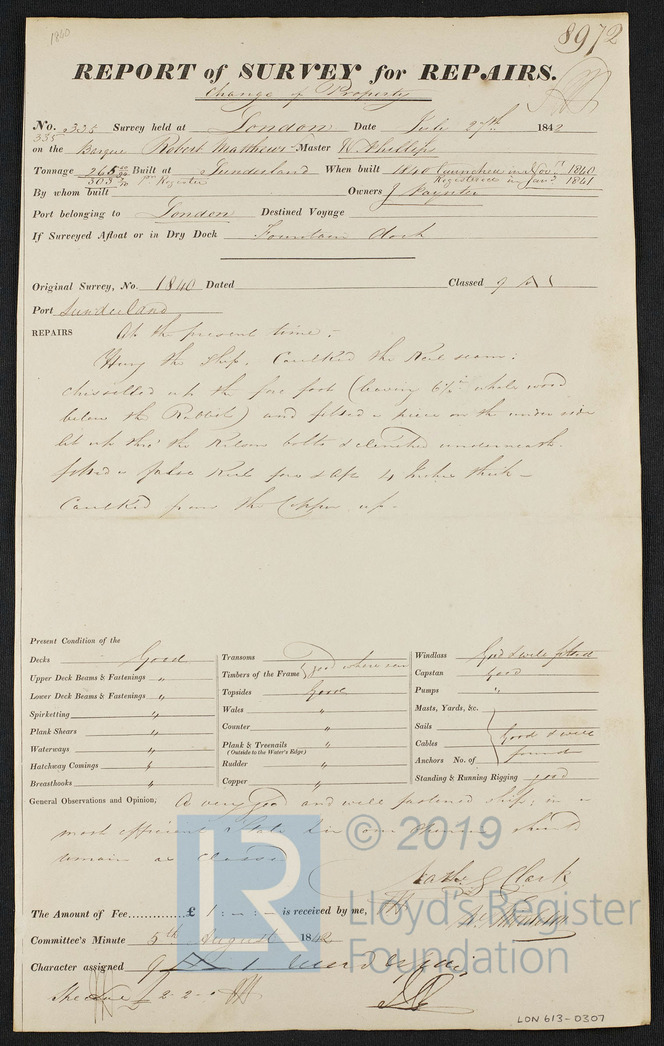 1980
8972
REPORT of SURVEY for REPAIRS.
Change of Property
No. 335 Survey held at London Date July 27th 1842
335
on the Barque Robert Matthews Master W. Phillips
Tonnage 265 Built at Sunderland When built 1840 launched in Novr. 1840
303 Pr Register Registered in Jany. 1841
By whom built Owners J Paynter
Port belonging to London Destined Voyage
If Surveyed Afloat or in Dry Dock Fountain dock
Original Survey, No. 1840 Dated Classed 9 A 1
Port Sunderland
REPAIRS At the present time;
Hung the Ship. Caulked the Keel seam:
chisselled up the fore foot (leaving 6½ in whole wood
below the Rabbits) and fitted a piece on the under side
let up thro' the Kelson bolts & clenched underneath.
fitted a false Keel fore & aft 4 Inches thick
Caulked from the Copper up.
Present Condition of the
Decks Good
Upper Deck Beams & Fastenings "
Lower Deck Beams & Fastenings "
Spirketting "
Plank Shears "
Waterways "
Hatchway Comings "
Breasthooks "
Transoms
Timbers of the Frame good where seen
Topsides Good
Wales "
Counter "
Plank & Treenails "
(Outside to the Water's Edge)
Rudder "
Copper "
Windlass Good & well fitted
Capstan Good
Pumps "
Masts, Yards, &c.
Sails
Cables Good & well
Anchors No. of found
Standing & Running Rigging good
General Observations and Opinion, A very good and well fastened Ship, in a
most efficient state in our opinion should
remain as Classed
Clark
The Amount of Fee............£ 1 : - : - is received by me,
Committee's Minute 5th August 1842
Character assigned 9 A 1
£ 2-2-0
© 2019
LR
Lloyd's Register
Foundation
LON 613-0307